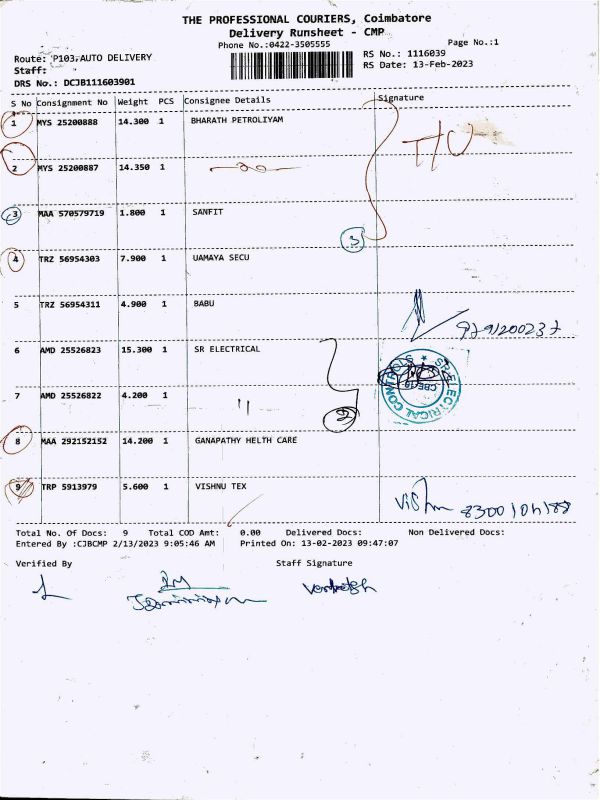 THE PROFESSIONAL COURIERS, Coimbatore
Delivery Runsheet - CMP
Phone No.:0422-3505555
Page No.:1
Route: P103,AUTO DELIVERY
RS No.: 1116039
Staff:
RS Date: 13-Feb-2023
DRS No.: DCJB111603901
S No Consignment No Weight PCS Consignee Details Signature
1 MYS 25200888 14.300 1 BHARATH PETROLIYAM
T/U
2 MYS 25200887 14.350 1
3 MAA 570579719 1.800 1 SANFIT
3
4 TRZ 56954303 7.900 1 UAMAYA SECU
5 TRZ 56954311 4.900 1 BABU
6 AMD 25526823 15.300 1 SR ELECTRICAL
SR ELECTRICAL CONTROLS
CBE
7 AMD 25526822 4.200 1 "
2
8 MAA 292152152 14.200 1 GANAPATHY HELTH CARE
9 TRP 5913979 5.600 1 VISHNU TEX
Total No. Of Docs: 9 Total COD Amt: 0.00 Delivered Docs: Non Delivered Docs:
Entered By :CJBCMP 2/13/2023 9:05:46 AM Printed On: 13-02-2023 09:47:07
Verified By Staff Signature
Venkatesh